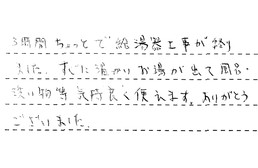 3時間ちょっとで給湯器工事が終り
ました。すぐに温かいお湯が出て風呂・
洗い物等気持良く使えます。ありがとう
ございました。